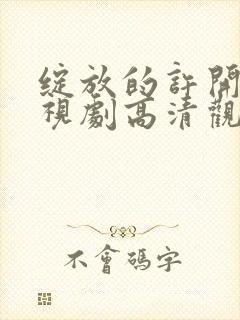 綻放的許開
視劇高清觀
不會碼字